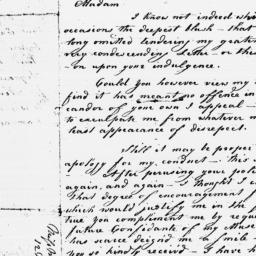 Madam
I know not indeed whi
occasions the deepest blush - that
long omitted tendering my grati
very condescending letter or thi
on upon your indulgence.
Could you however view my
find it has meant no offence in
candor of your own I appeal
to exculpate me from whatever m
least appearance of disrespect.
Still it may be proper
apology for my conduct - this
After perusing your poli
again, and again - thought I c
that degree of encouragement
which would justify me in the
true you compliment me by reque
future Confidante of my Muse
has scarce deign'd me a smile
you so kindly receiv'd - I have h